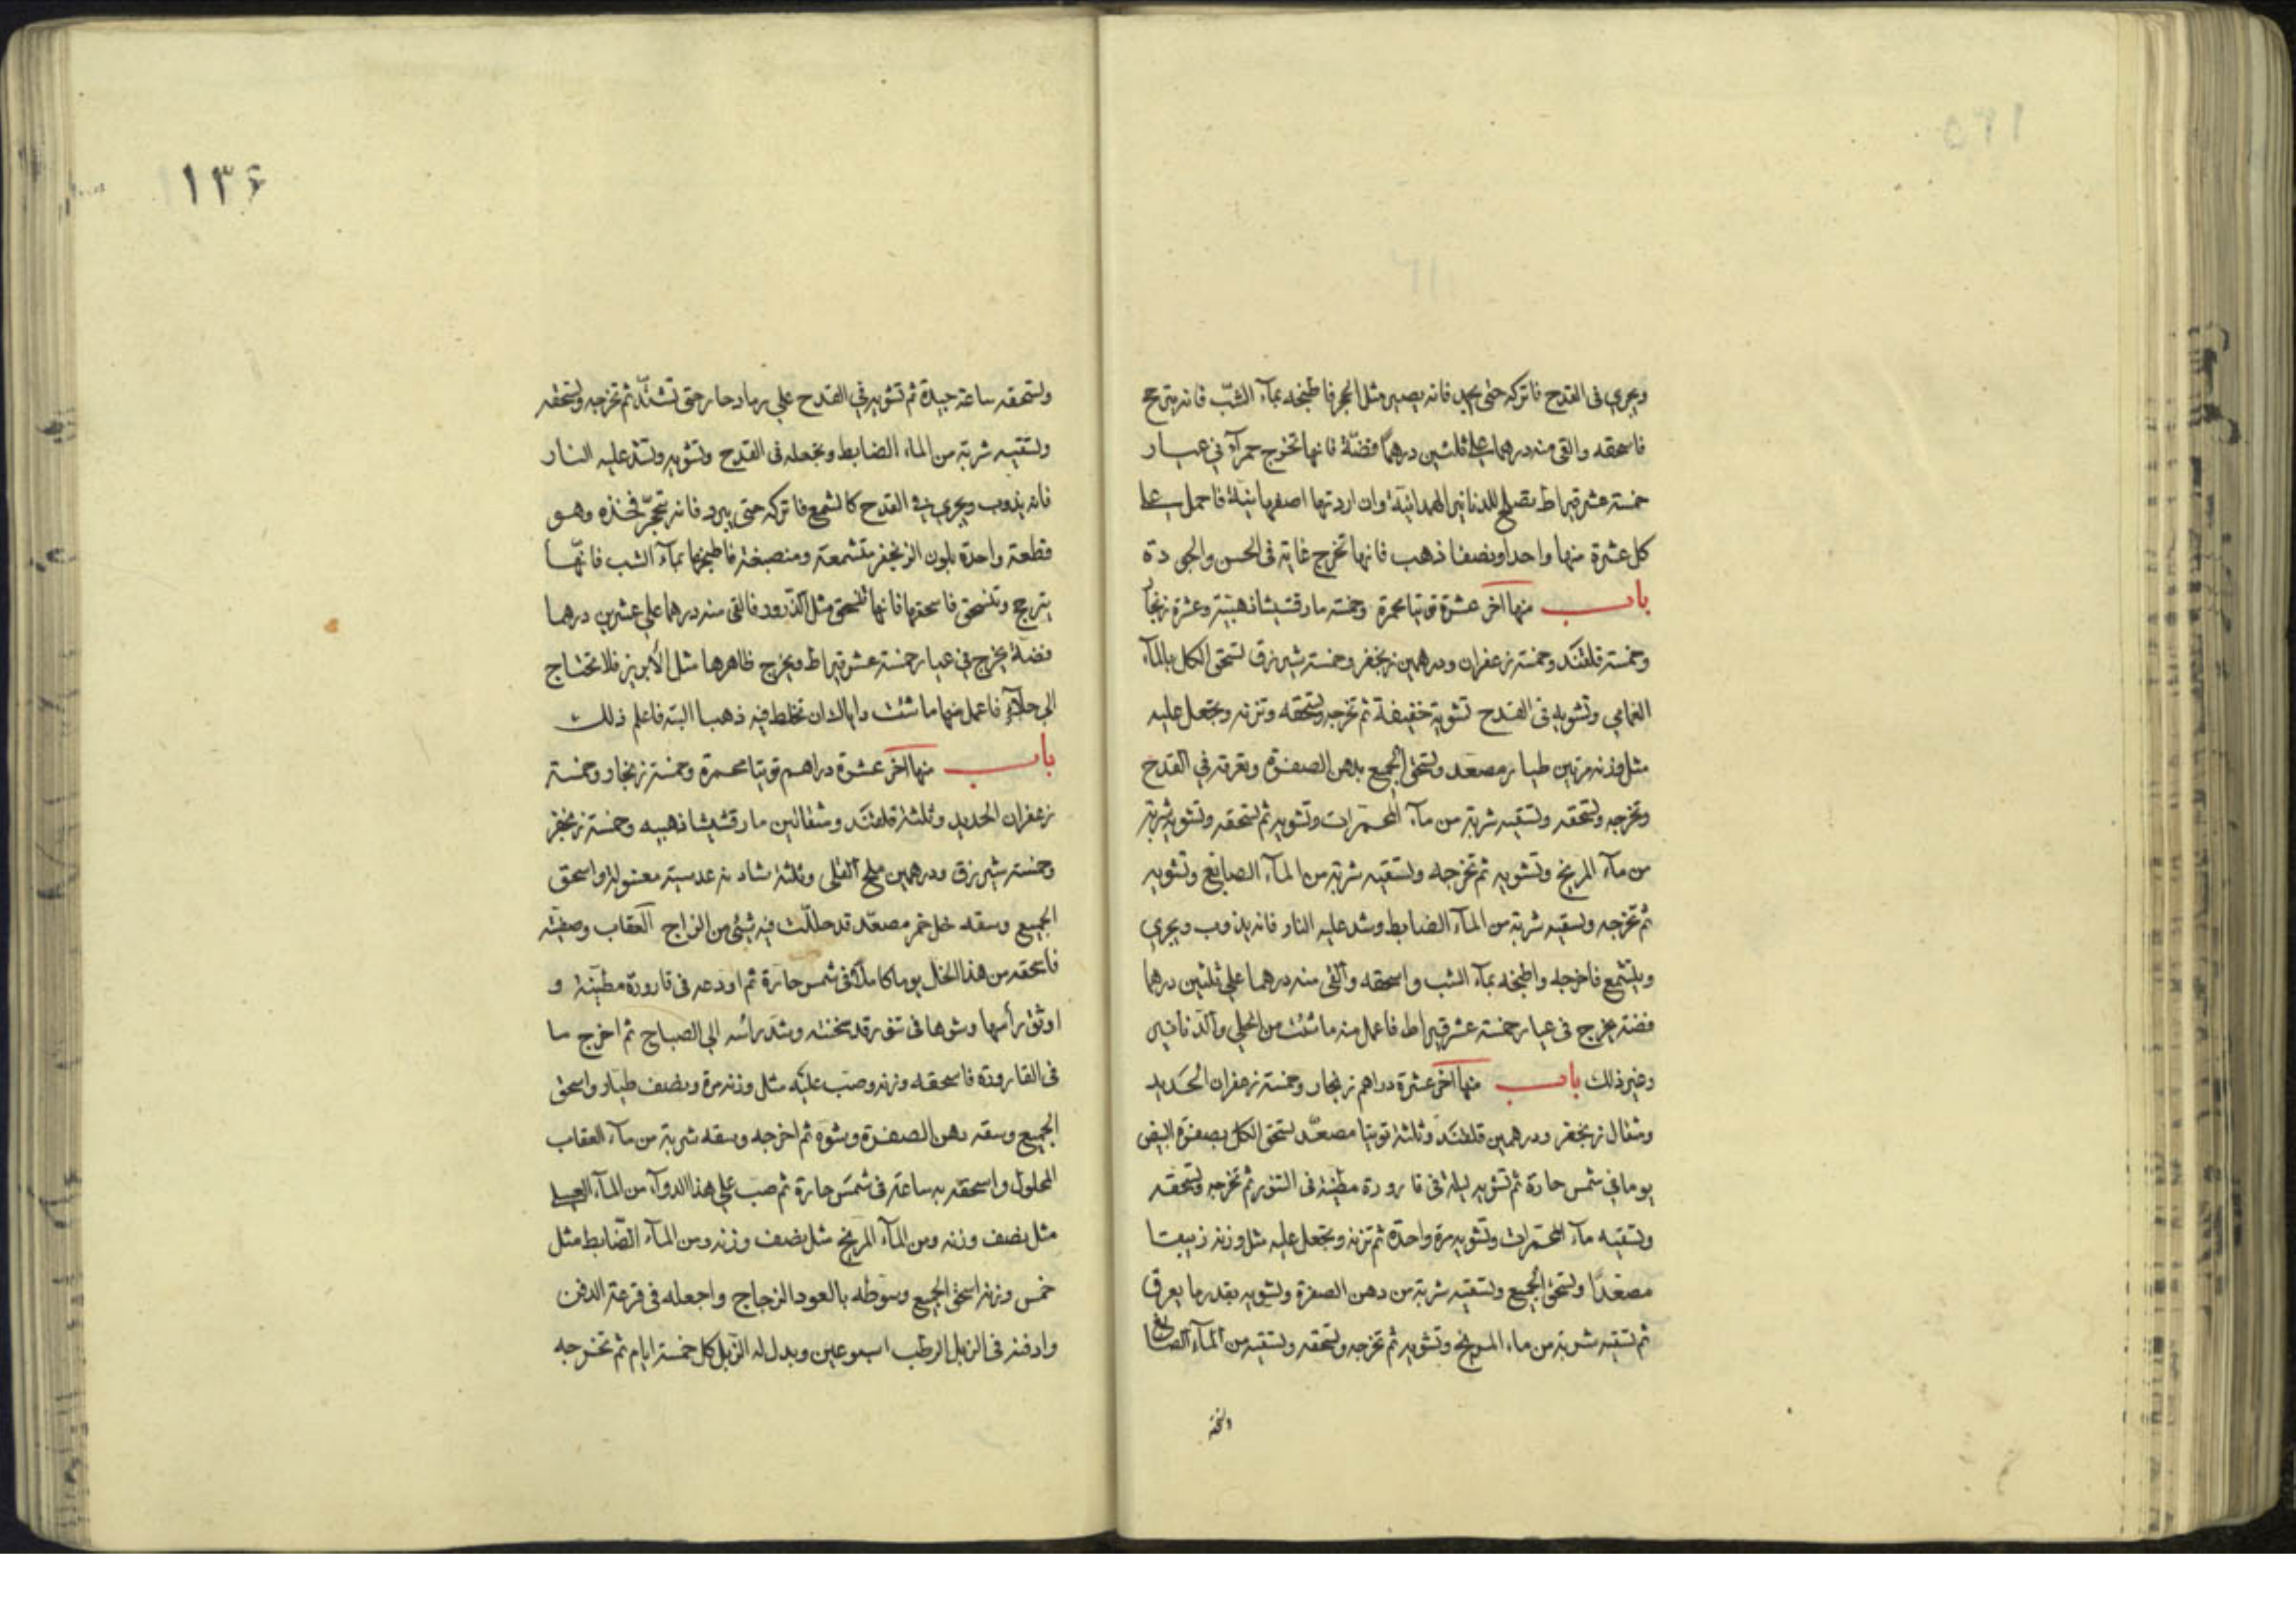 ويجري في القدح فاتركه حتى يجمد فانه يصير مثل الحجر فاطبخه بمآء الشبّ فانه يترجح
فاسحقه والقى منه درهما على ثلثين درهماً فضّة فانها تخرج حمرآء في عيار
خمسة عشر قيراط تصلح للدنانير الهمدانية وان اردتها اصفهانية فاحمل على
كل عشرة منها واحدا ونصفا ذهب فانها تخرج غاية في الحسن والجودة
باب منها آخر عشرة توتيا محمرة وخمسة مارقشيشا ذهبية وعشرة زنجار
وخمسة قلقند وخمسة زعفران ودرهمين زنجفر وخمسة شيرزق تسحق الكل بالمآء
وتشويه في القدح تشوية خفيفة ثم تخرجه وتسحقه وتزنه وتجعل عليه
مثل وزنه مرتين طيار مصعد وتسحق الجميع بدهن الصفرة وتعرقه في القدح
وتخرجه وتسحقه وتسقيه شربة من مآء المحمرات وتشويه ثم تسحقه وتشويه شربة
من مآء المريخ وتشويه ثم تخرجه وتسقيه شربة من المآء الصابغ وتشويه
ثم تخرجه وتسقيه شربة من المآء الضابط وشد عليه النار فانه يذوب ويجري
ويتشمع فاخرجه واطبخه بمآء الشب واسحقه والقى منه درهما على ثلثين درهما
فضة يخرج في عيار خمسة عشر قيراط فاعمل منه ما شئت من الحلي والدنانير
وغير ذلك باب منها آخر عشرة دراهم زنجار وخمسة زعفران الحديد
ومثقال زنجفر ودرهمين قلقند وثلثة توتيا مصعّد تسحق الكل بصفرة البيض
يوما في شمس حارة ثم تشويه ليلة في قارورة مطينة في التنور ثم تخرجه وتسحقه
وتسقيه مآء المحمرات وتشويه مرة واحدة ثم تزنه وتجعل عليه مثل وزنه زيبقا
مصعّدا وتسحق الجميع وتسقيه شربة من دهن الصفرة وتشويه بقدر ما يعرق
ثم تسقيه شربة من ماء المريخ وتشويه ثم تخرجه وتسحقه وتسقيه من المآء الصابغ
وتسحقه
١٣۶
وتسحقه ساعة جيدة ثم تشويه في القدح على رماد حار حتى تشتدّ ثم تخرجه وتسحقه
وتسقيه شربة من الماء الضابط وتجعله في القدح وتشويه وتشد عليه النار
فانه يذوب ويجري في القدح كالشمع فاتركه حتى يبرد فانه يتحجّر فخذه وهو
قطعة واحدة بلون الزنجفر متشمعة ومنصبغة فاطبخها بمآء الشب فانّها
يترجح وتنسحق فاسحقها فانها تنسحق مثل الذرور فالقى منه درهما على عشرين درهما
فضة يخرج في عيار خمسة عشر قيراط ويخرج ظاهرها مثل الأبريز فلا تحتاج
الى جلآء فاعمل منها ما شئت واياك ان تخلط فيه ذهبا البتة فاعلم ذلك
باب منها آخر عشرة دراهم توتيا محمرة وخمسة زنجار وخمسة
زعفران الحديد وثلثة قلقند ومثقالين مارقشيشا ذهبيه وخمسة زنجفر
وخمسة شيرزق ودرهمين ملح القلى وثلثة شادنه عدسية مغسولة واسحق
الجميع وسقه خل خمر مصعّد قد حللّت فيه شئ من الزاج العقاب وصفيّته
فاسحقه من هذا الخل يوما كاملاً في شمس حارة ثم اودعه في قارورة مطيّنة و
اوثق رأسها وشوها في تنور قد سخنته وشد رأسه الى الصباح ثم اخرج ما
في القارورة فاسحقه وزنه وصب عليه مثل وزنه مرة ونصف طيار واسحق
الجميع وسقه دهن الصفرة وشوه ثم اخرجه وسقه شربة من مآء العقاب
المحلول واسحقه به ساعة في شمس حارة ثم صب على هذا الدوآء من المآء
مثل نصف وزنه ومن المآء المريخ مثل نصف وزنه ومن المآء الضابط مثل
خمس وزنه اسحق الجميع وسوطه بالعود الزجاج واجعله في قرعة الدفن
وادفنه في الزبل الرطب اسبوعين وبدل له الزبل كل خمسة ايام ثم تخرجه